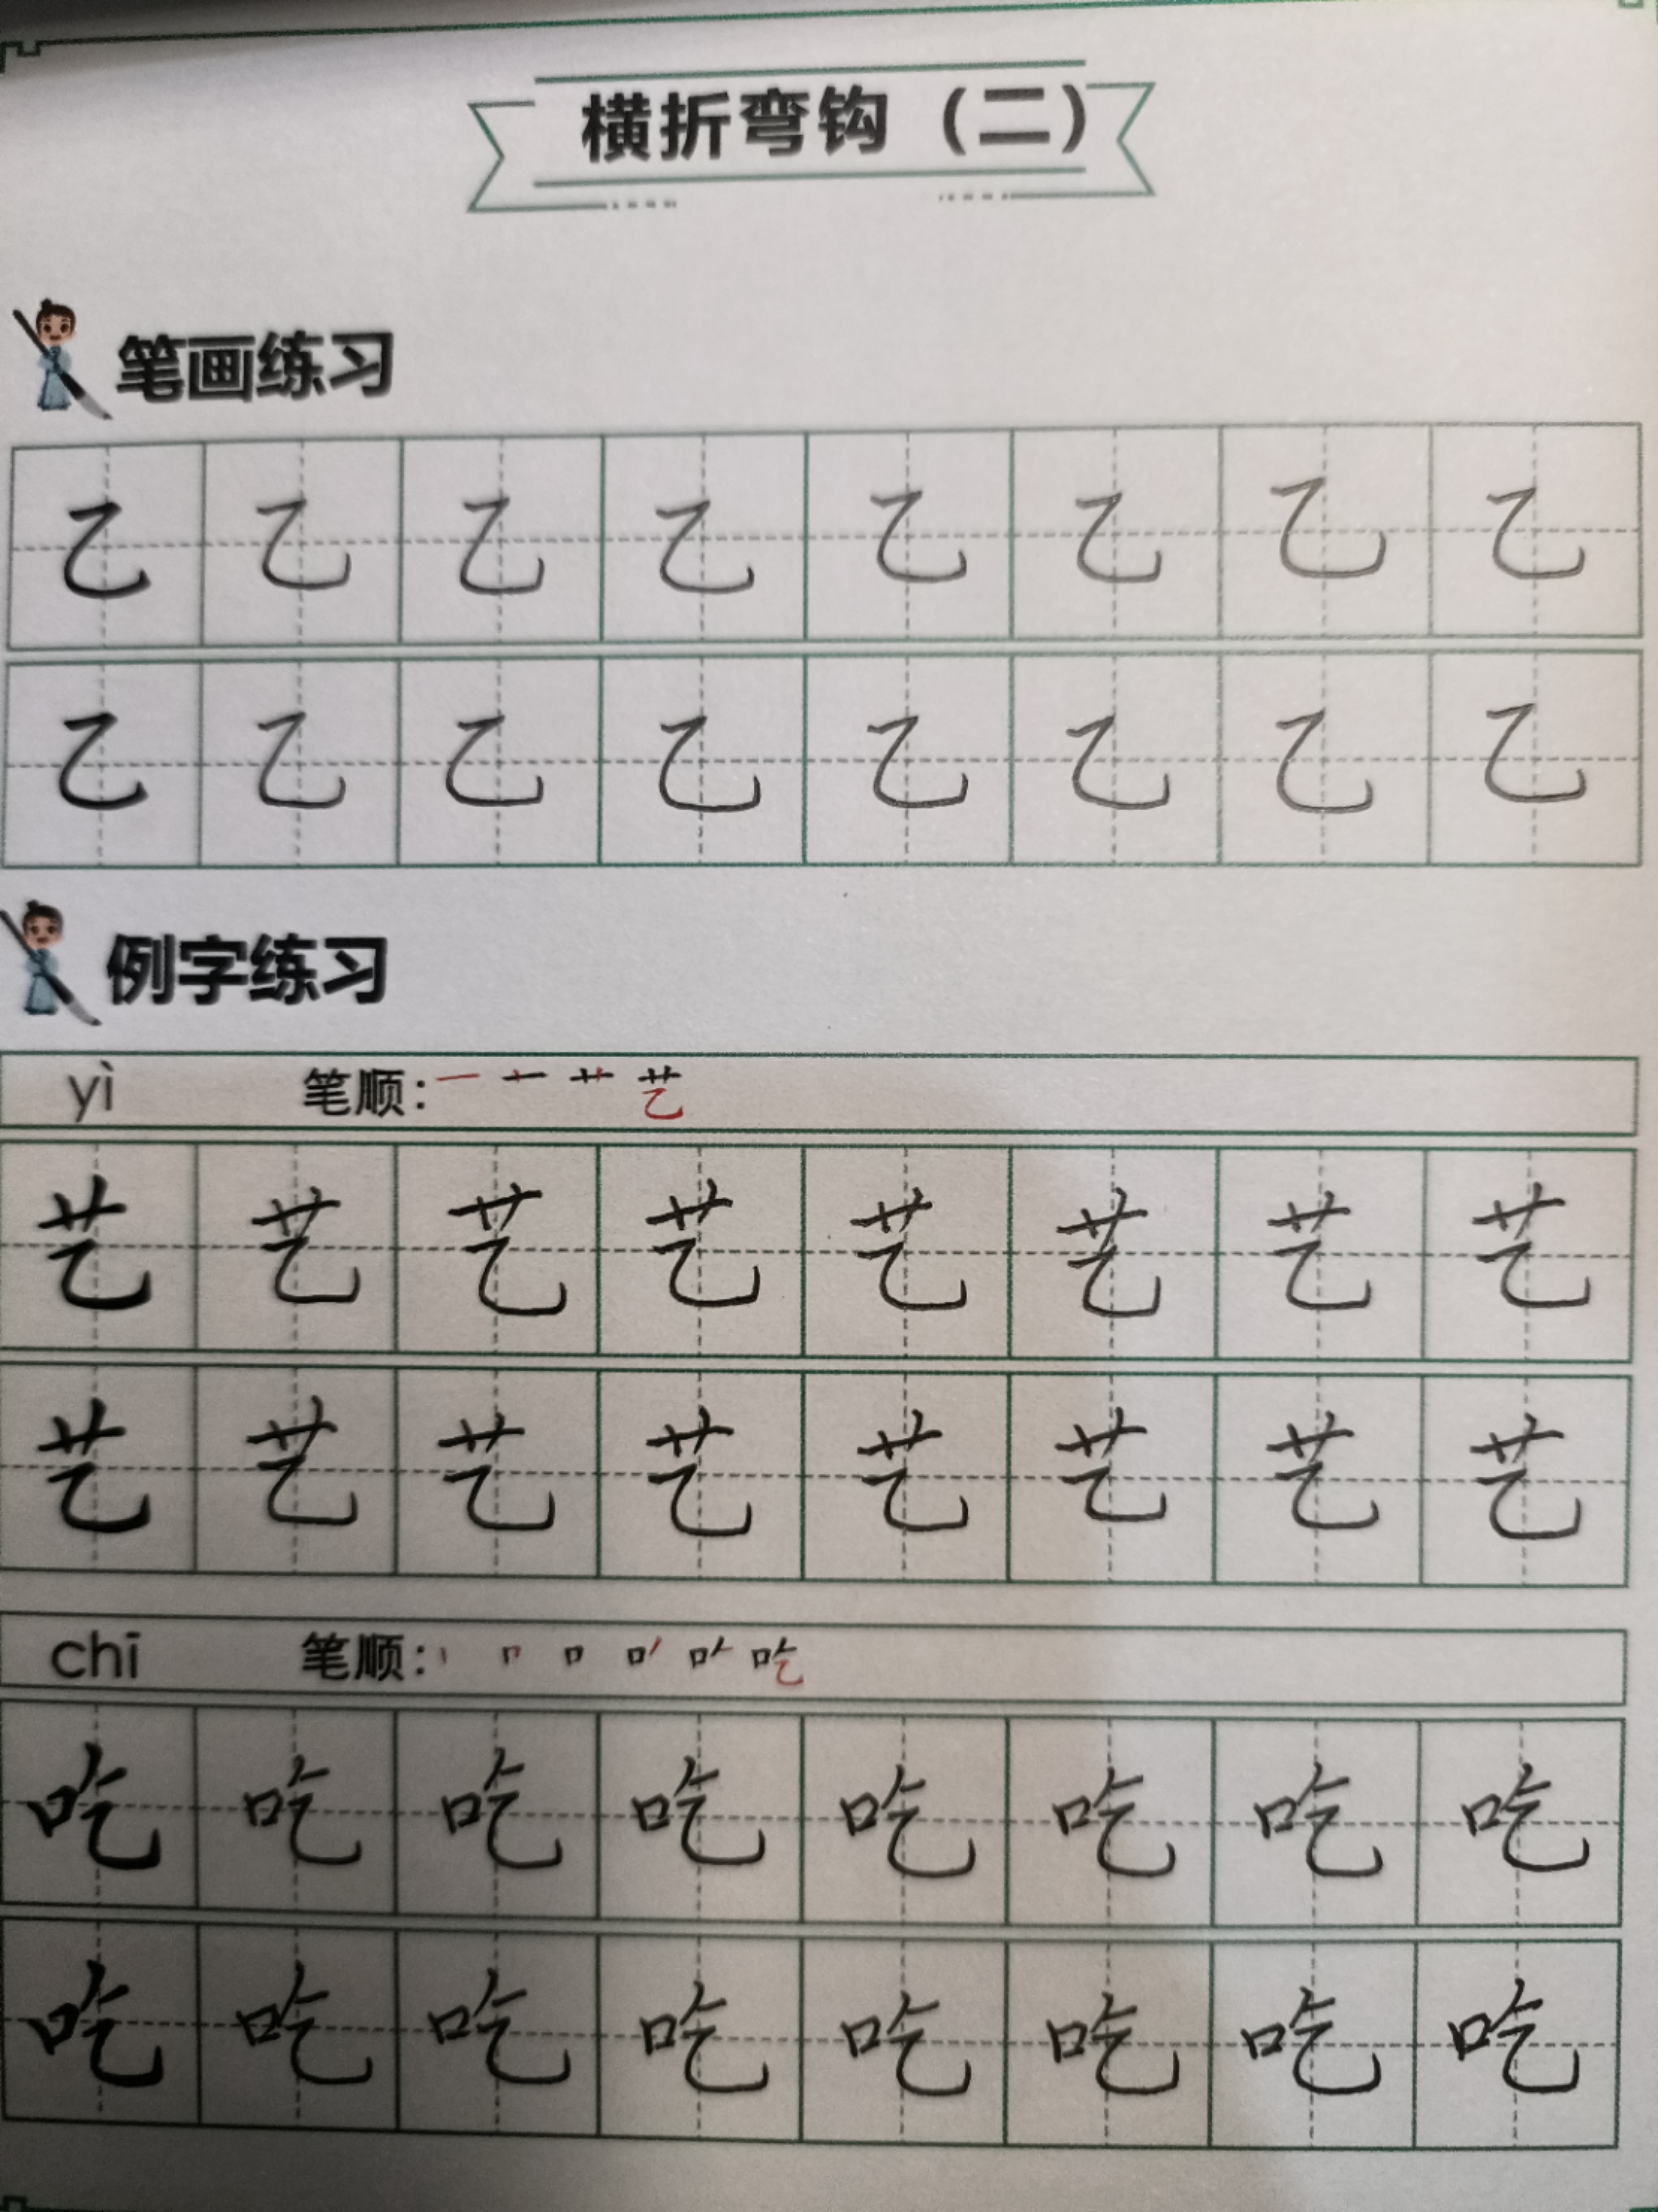 横折弯钩（二）
笔画练习
乙 乙 乙 乙 乙 乙 乙 乙
乙 乙 乙 乙 乙 乙 乙 乙
例字练习
yì 笔顺：一 十 艹 艺
艺 艺 艺 艺 艺 艺 艺 艺
艺 艺 艺 艺 艺 艺 艺 艺
chī 笔顺：丨 冂 口 吃
吃 吃 吃 吃 吃 吃 吃 吃
吃 吃 吃 吃 吃 吃 吃 吃